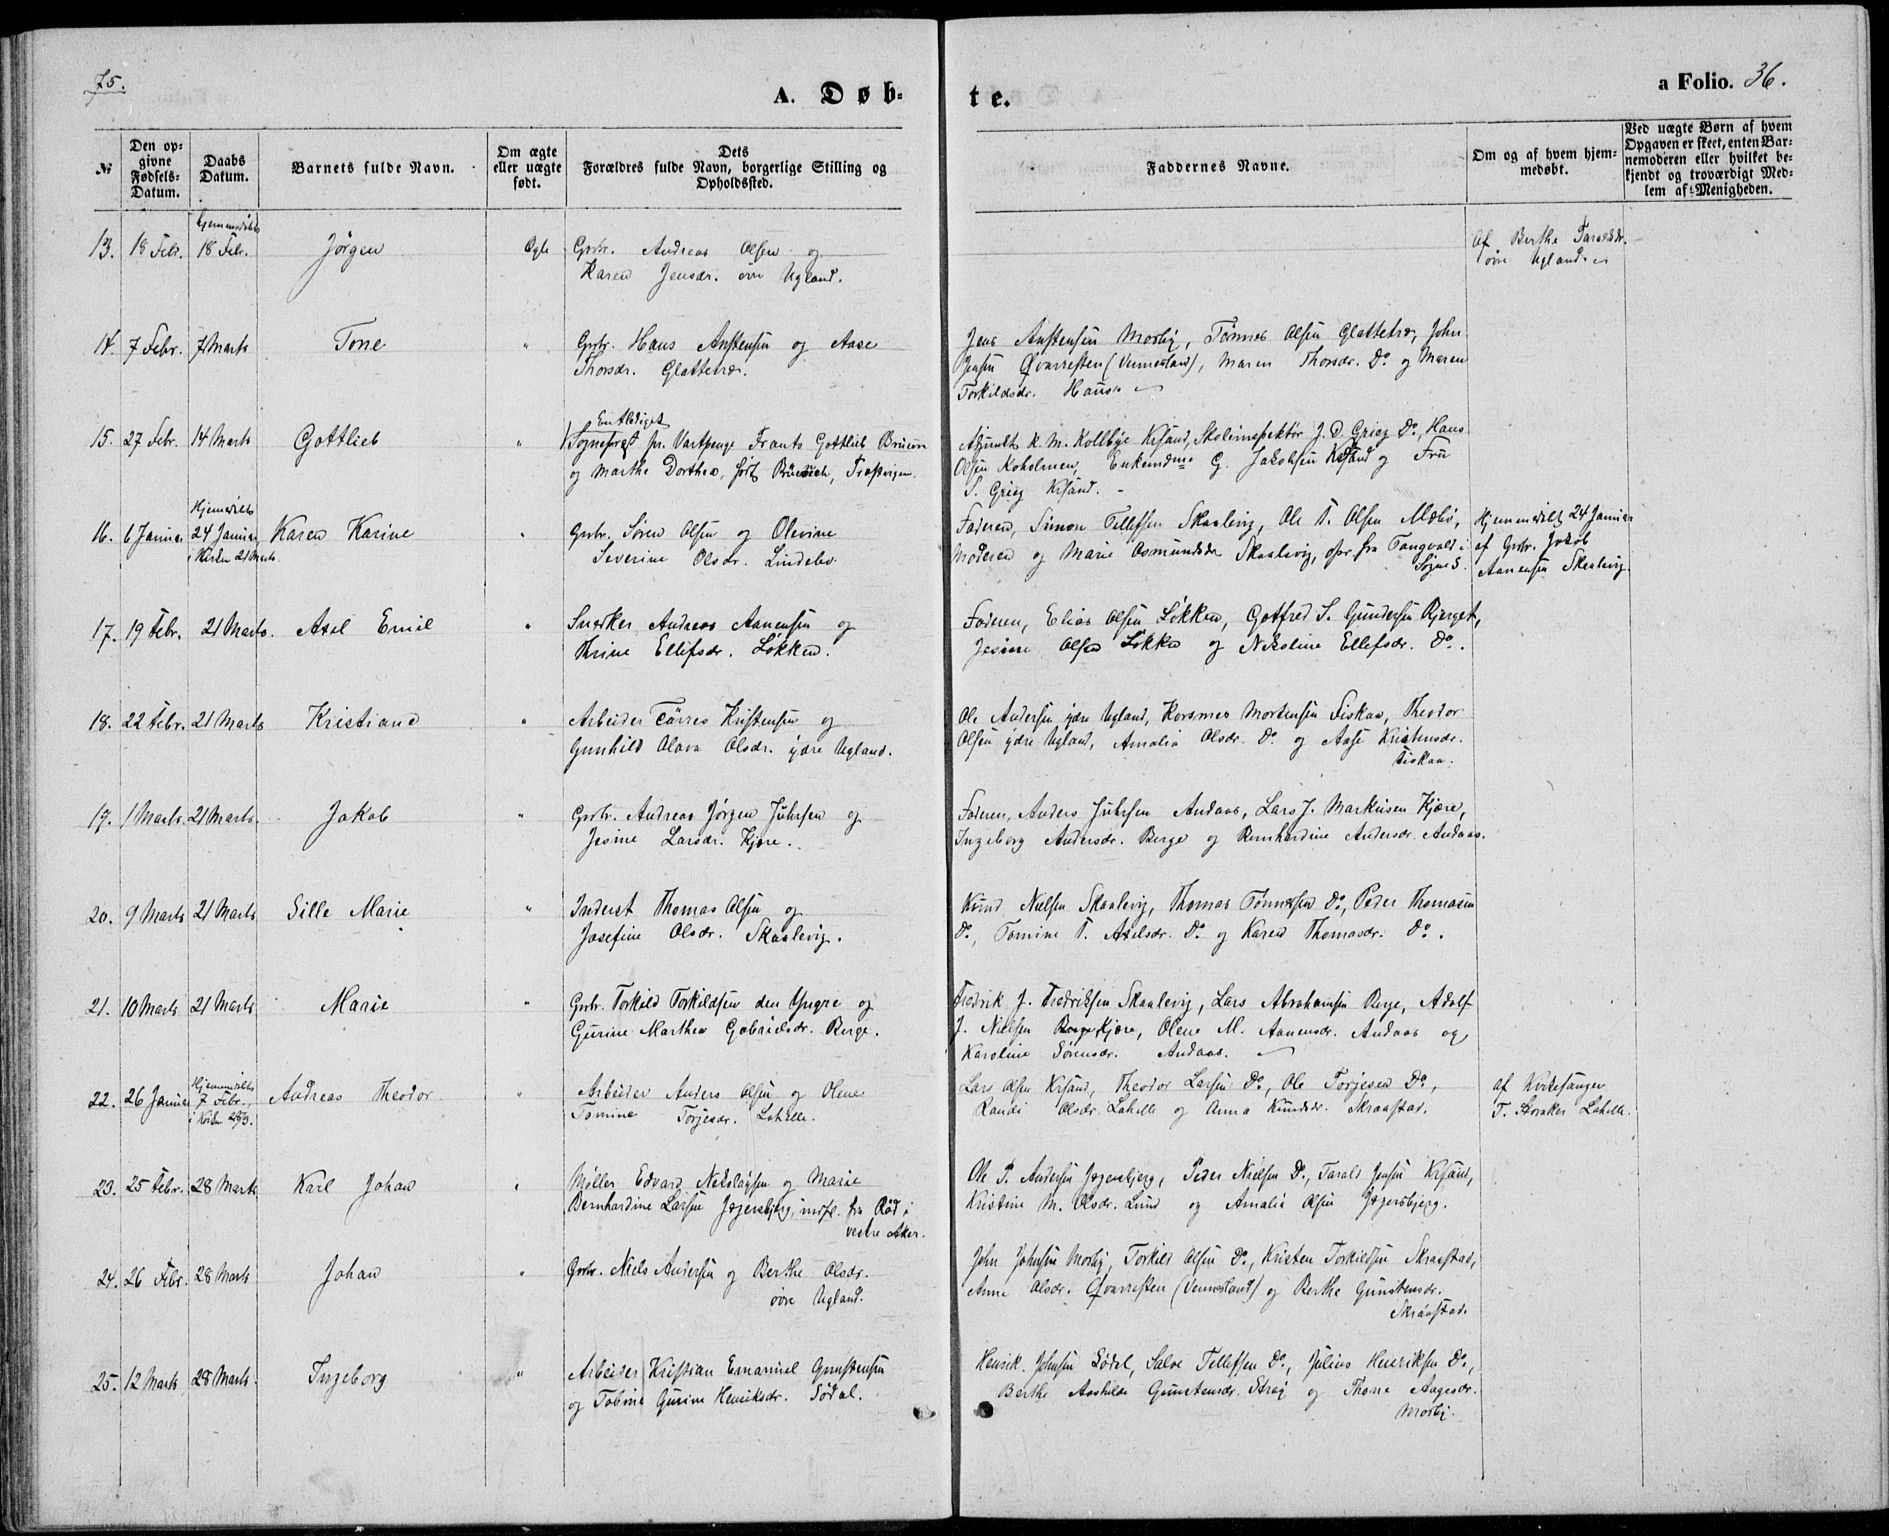 75.
A. Døb-
te.
a Folio. 36.
№
Den op-
givne
Fødsels-
Datum.
Daabs
Datum.
Barnets fulde Navn.
Om ægte
eller uægte
født.
Dets
Forældres fulde Navn, borgerlige Stilling og
Opholdssted.
Faddernes Navne.
Om og af hvem hjem-
medøbt.
Ved uægte Børn af hvem
Opgaven er skeet, enten Bar-
nemoderen eller hvilket be-
kjendt og troværdigt Med-
lem af Menigheden.
13. 18 Febr. 18 Febr. Jörgen Ægte Grbr. Andreas Olsen og
Karen Jensdr. övre Ugland.
Af Berthe
övre Ugland.
14. 7 Febr. 7 Marts Tone " Grbr. Hans Anstensen og Aase
Thorsdr. Glattetre.
Jens Anstensen Mosby, Tönnes Olsen Glattetre, John
Jensen Qvarresten (Vennesland), Maren Thorsdr. Do og Maren
Torkildsdr. Haus
15. 27 Febr. 14 Marts Gottlieb " Entlediget
Sogneprest Frants Gottlieb
og Marthe Dorthea, født
K. M. Kollbye Krsand, Skoleinspektör J. D. Grieg Do, Hans
Olsen Koholmen, Enkemdme G. Jakobsen Krsand og Fru
S. Grieg Krsand.
16. 6 Januar Hjemmedöbt
24 Januar,
i Kirken 21 Marts Karen Karine " Grbr. Sören Olsen og Olevine
Severine Olsdr. Lindebö
Faderen, Simon Tellefsen Skaalevig, Ole T. Olsen Mæbö,
Moderen og Marie Osmundsdr Skaalevig, fra Tangvald i
Sögne
Hjemmedöbt 24 Januar
af Grbr. Jakob
Aanensen Skaalevig.
17. 19 Febr. 21 Marts. Axel Emil " Snedker Andreas Aanensen og
Thrine Ellefsdr. Lökken.
Faderen, Elias Olsen Lökken, Gotfred S. Gundersen Bjerget,
Jesine Olsen Lökken og Nikoline Ellefsdr. Do.
18. 22 Febr. 21 Marts Kristiane " Arbeider Törres Kristensen og
Gunhild Olava Olsdr. ydre Ugland.
Ole Andersen ydre Ugland, Mortensen Fiskaa, Theodor
Olsen ydre Ugland, Amalia Olsdr. Do og Aase Kristensdr.
Fiskaa.
19. 1 Marts. 21 Marts. Jakob " Grbr. Andreas Jörgen Juhlsen og
Jesine Larsdr. Kjære.
Faderen, Anders Juhlsen Andaas, Lars J. Markusen Kjære,
Ingeborg Andersdr. Berge og Bernhardine Andersdr. Andaas.
20. 9 Marts 21 Marts Sille Marie " Inderst Thomas Olsen og
Josefine Olsdr. Skaalevig.
Knud Nielsen Skaalevig, Thomas Tönnesen Do, Peder Thomasen
Do, Tomine T. Axelsdr. Do og Karen Thomasdr. Do.
21. 10 Marts 21 Marts Marie " Grbr. Torkild Torkildsen den Yngre og
Gurine Marthea Gabrielsdr. Berge.
Fredrik J. Fredriksen Skaalevig, Lars Abrahamsen Berge, Adolf
J. Nielsen Kjære, Olene M. Aanensdr. Andaas og
Karoline Sörensdr. Andaas.
22. 26 Januar Hjemmedöbt
7 Febr.,
i Kirken 28/3. Andreas Theodor " Arbeider Anders Olsen og Olene
Tomine Torjesdr. Lahelle.
Lars Olsen Krsand, Theodor Larsen Do, Ole Torjesen Do,
Randi Olsdr. Lahelle og Anna Knudsdr. Skraastad.
af Kirkesanger
T. Lahelle.
23. 25 Febr. 28 Marts Karl Johan " Möller Edvard Nikolaysen og Marie
Bernhardine Larsen Jægersbjerg, indfl. fra Röd i
vestre Aker.
Ole P. Andersen Jægersbjerg, Peder Nielsen Do, Tarald Jensen Krsand,
Kristine M. Olsdr. Lund og Amalia Olsen Jægersbjerg.
24. 26 Febr. 28 Marts Johan " Grbr. Niels Andersen og Berthe Olsdr.
övre Ugland.
John Johnsen Mosby, Torkild Olsen Do, Kristen Torkildsen Skraastad,
Anne Olsdr. Qvarresten (Vennesland) og Berthe Gunstensdr.
Skraastad.
25. 12 Marts 28 Marts. Ingeborg " Arbeider Kristian Emanuel Gunstensen
og Tobine Gurine Henriksdr. Södal.
Henrik Johnsen Södal, Salve Tellefsen Do, Julius Henriksen Do,
Berthe Aashilde Gunstensdr. Stray og Thone Aagesdr.
Mosby.